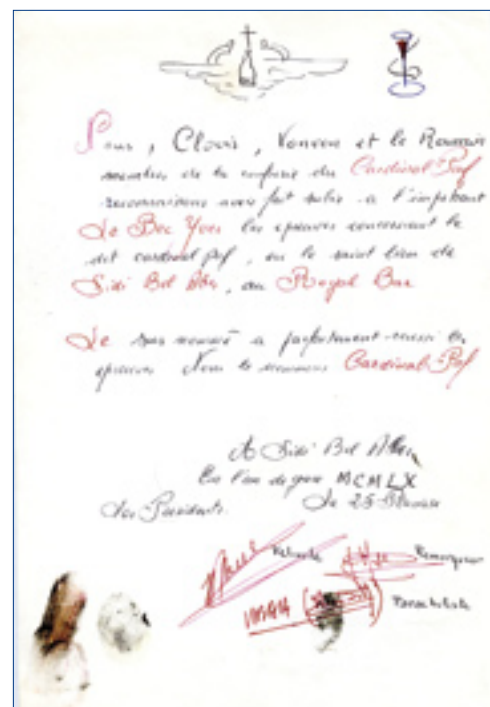 Nous, Clovis, et le Roumain
membres de la confrérie du Cardinal Paf
reconnaissons avoir fait subir à l'impétrant
Le Bec Yves les épreuves concernant le
dit cardinal paf, en le saint lieu de
Sidi Bel Abbès, au Royal Bar
Le sus nommé a parfaitement réussi les
épreuves Nous le nommons Cardinal-Paf
A Sidi Bel Abbès
En l'an de grâce MCMLX
Les Présidents. Le 25